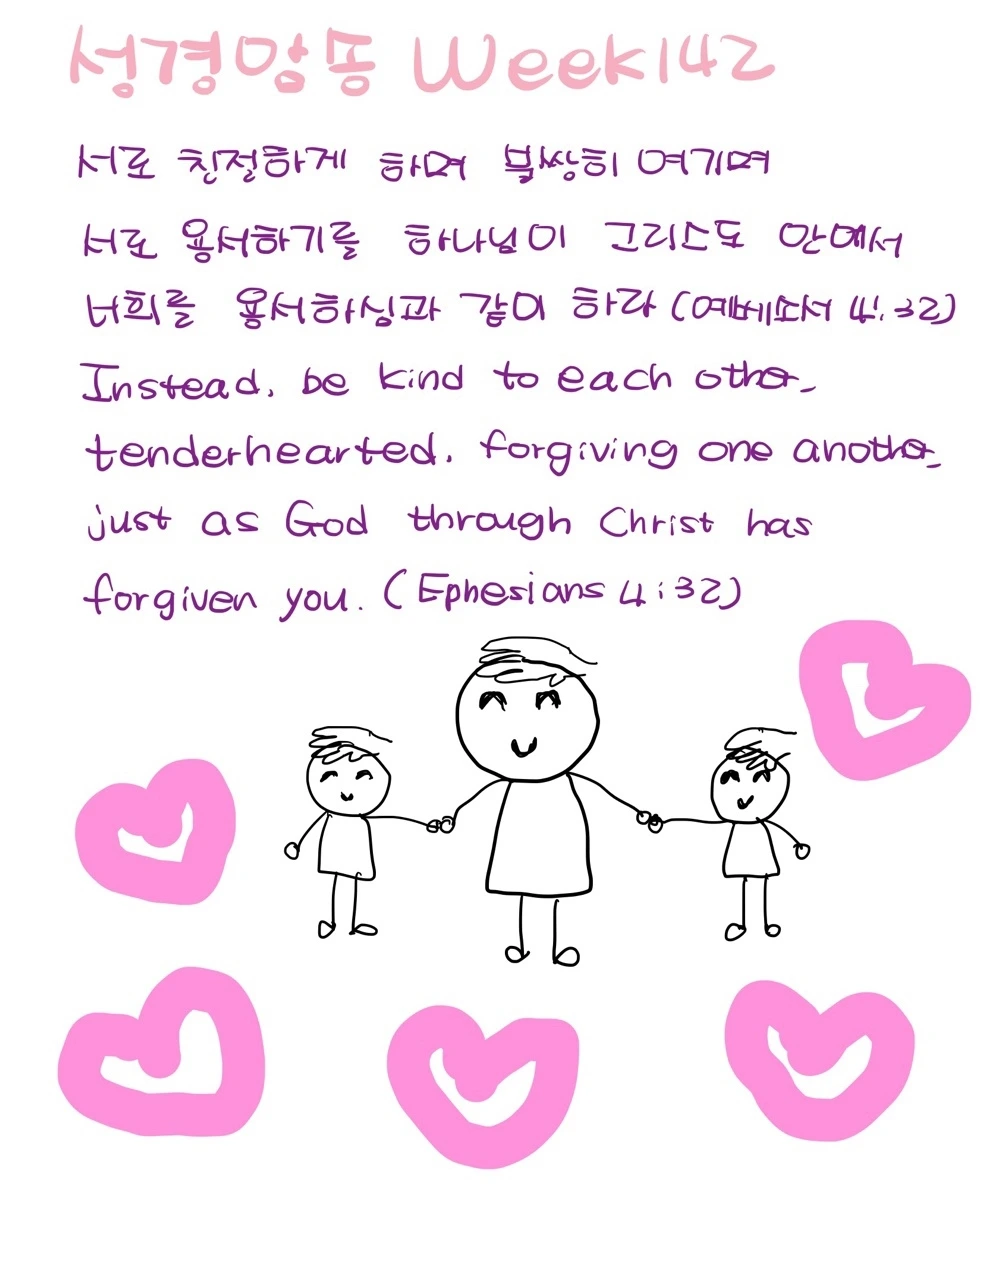 성경암송 Week142
서로 친절하게 하며 불쌍히 여기며
서로 용서하기를 하나님이 그리스도 안에서
너희를 용서하심과 같이 하라 (에베소서 4:32)
Instead, be kind to each other,
tenderhearted, forgiving one another,
just as God through Christ has
forgiven you. (Ephesians 4:32)